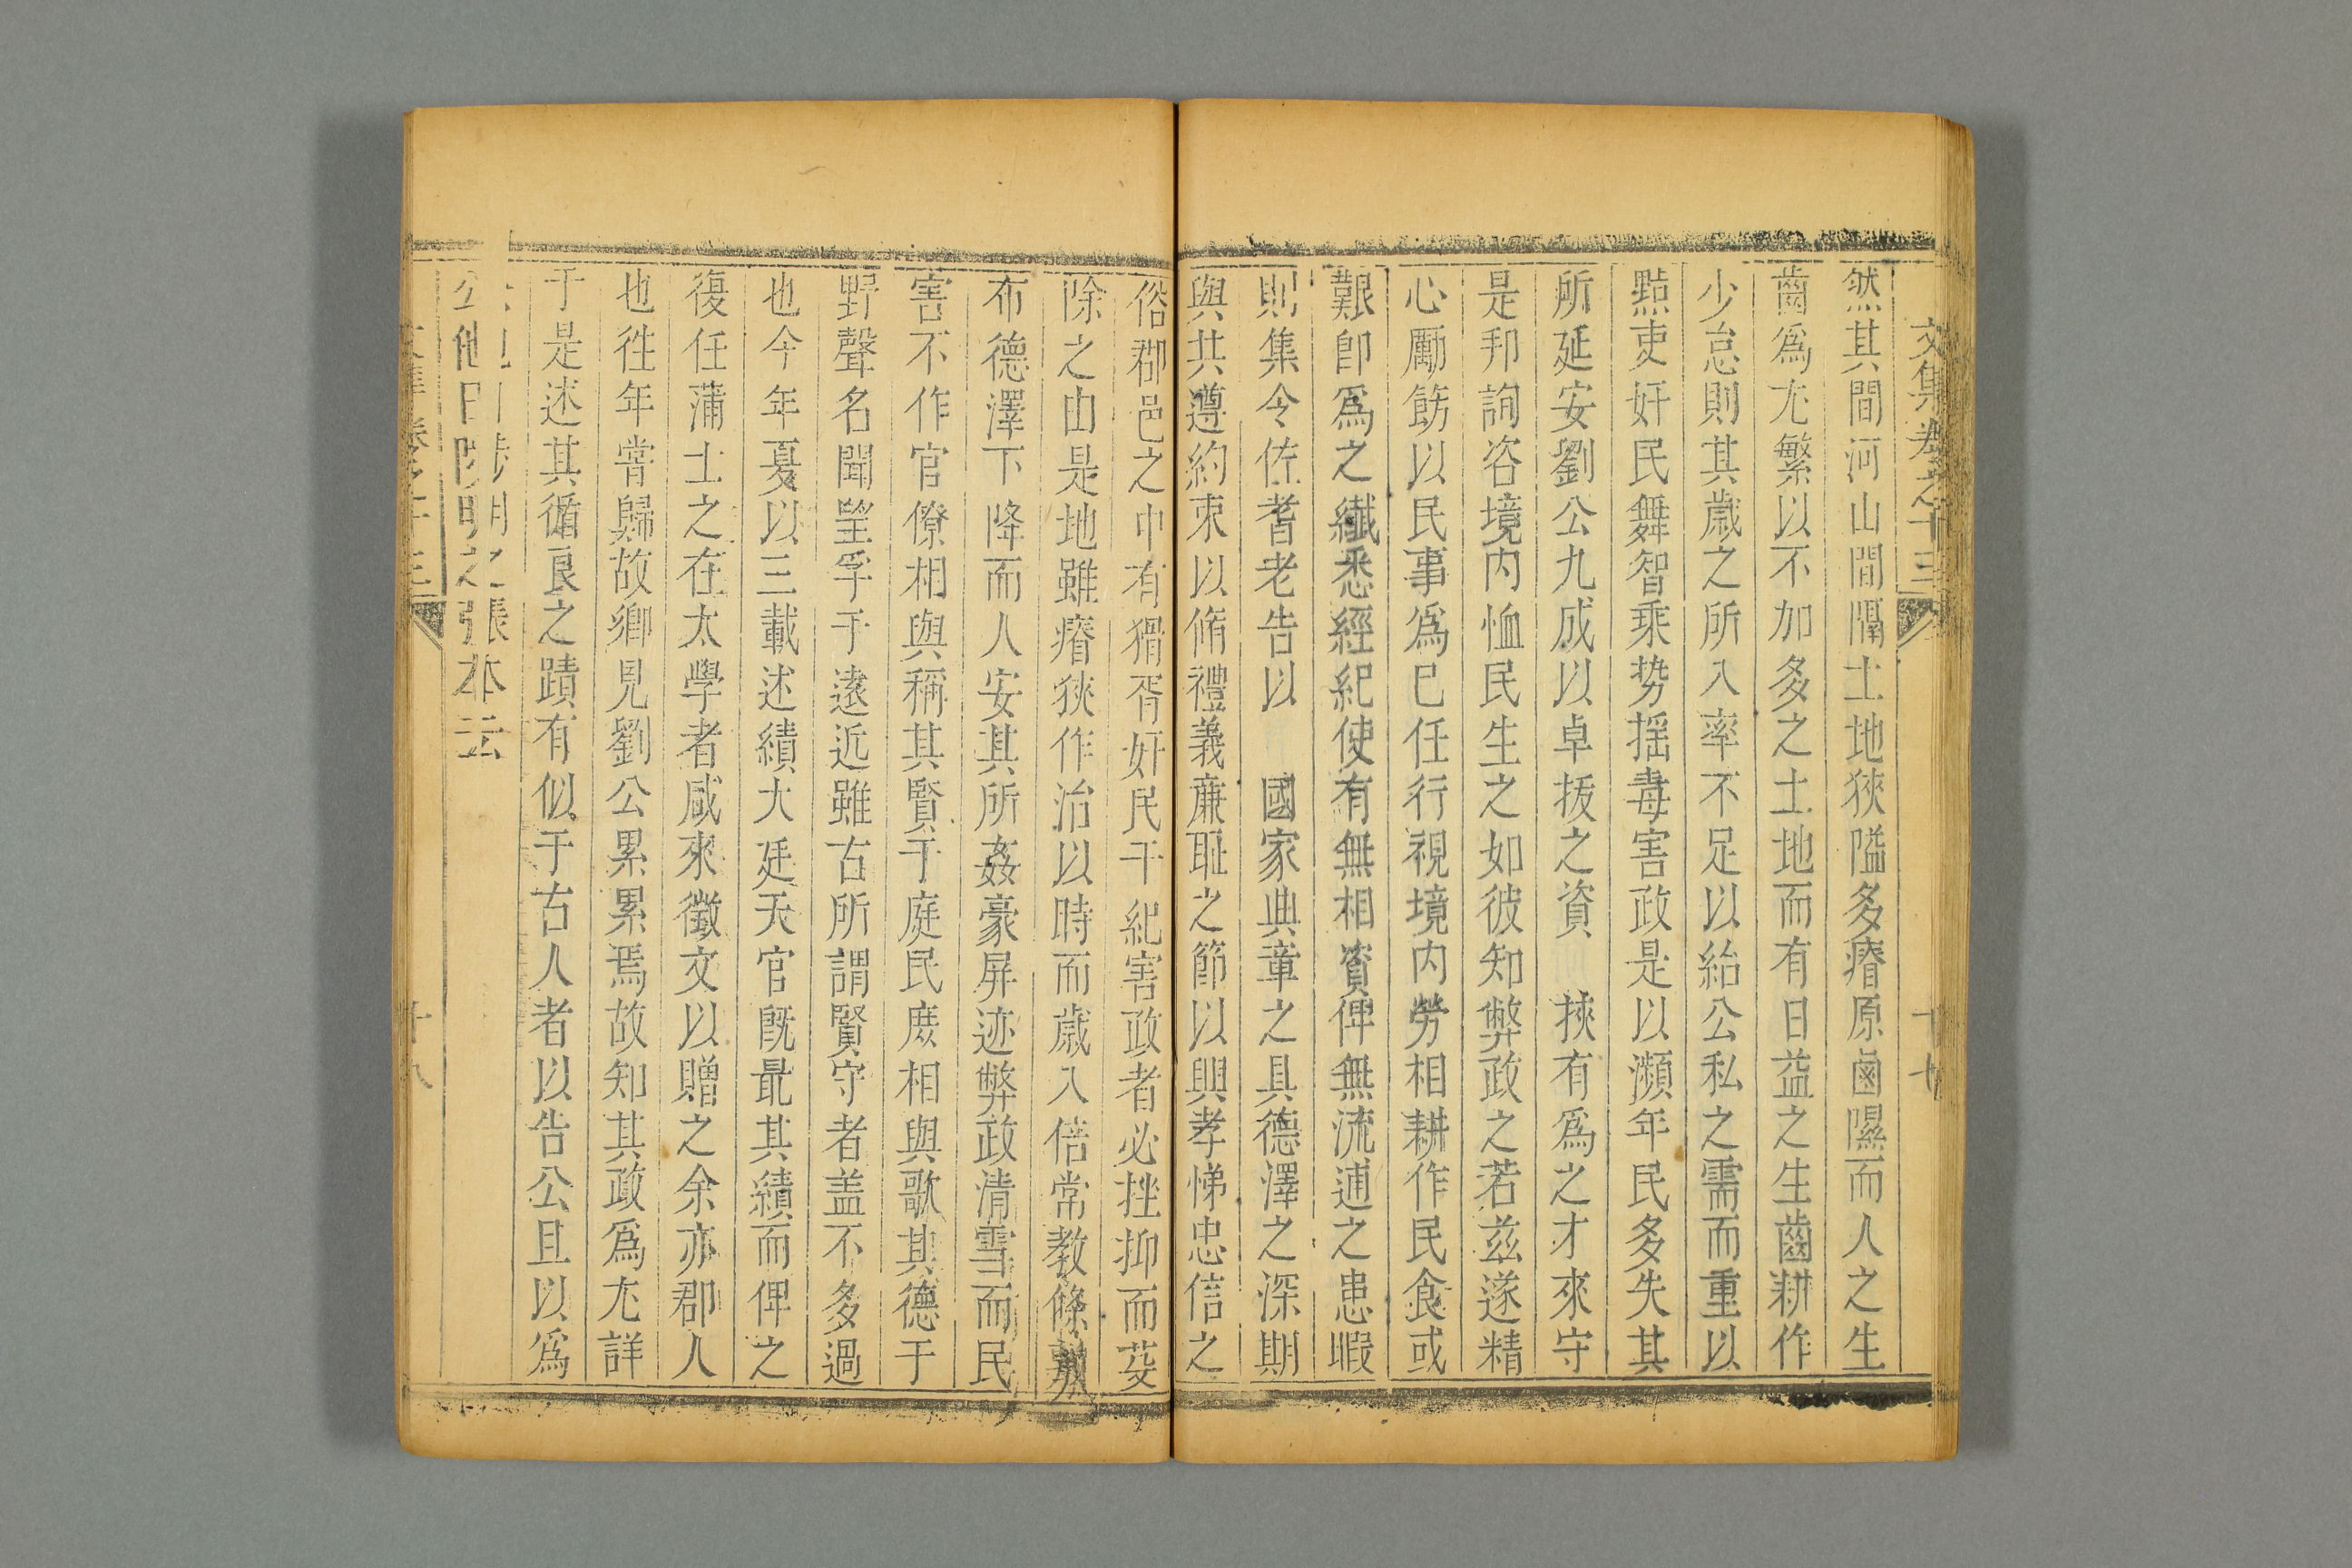 文集卷之十三
十七
然其間河山間隔土地狹隘多瘠原鹵隰而人之生
齒爲尤繁以不加多之土地而有日益之生齒耕作
少怠則其歲之所入率不足以給公私之需而重以
黠吏奸民舞智乘势揺毒害政是以瀕年民多失其
所延安劉公九成以卓拔之資 挾有爲之才來守
是邦詢咨境内恤民生之如彼知弊政之若兹遂精
心勵飭以民事爲已任行視境内勞相耕作民食或
艱即爲之纎悉經紀使有無相資俾無流逋之患暇
則集令佐耆老告以 國家典章之具德澤之深期
與共遵約束以脩禮義㢘耻之節以興孝悌忠信之
俗郡邑之中有猾胥奸民干紀害政者必挫抑而芟
除之由是地雖瘠狹作治以時而歲入倍常教條
布德澤下降而人安其所姦豪屏迹弊政清雪而民
害不作官僚相與稱其賢于庭民庶相與歌其德于
野聲名聞望孚于遠近雖古所謂賢守者盖不多過
也今年憂以三載述績大廷天官既最其績而俾之
復任蒲士之在太學者咸來徵文以贈之余亦郡人
也徃年甞歸故鄉見劉公累累焉故知其政爲尤詳
于是述其循良之蹟有似于古人者以告公且以爲
公他日陟明之張本云
文集卷之十三
十八